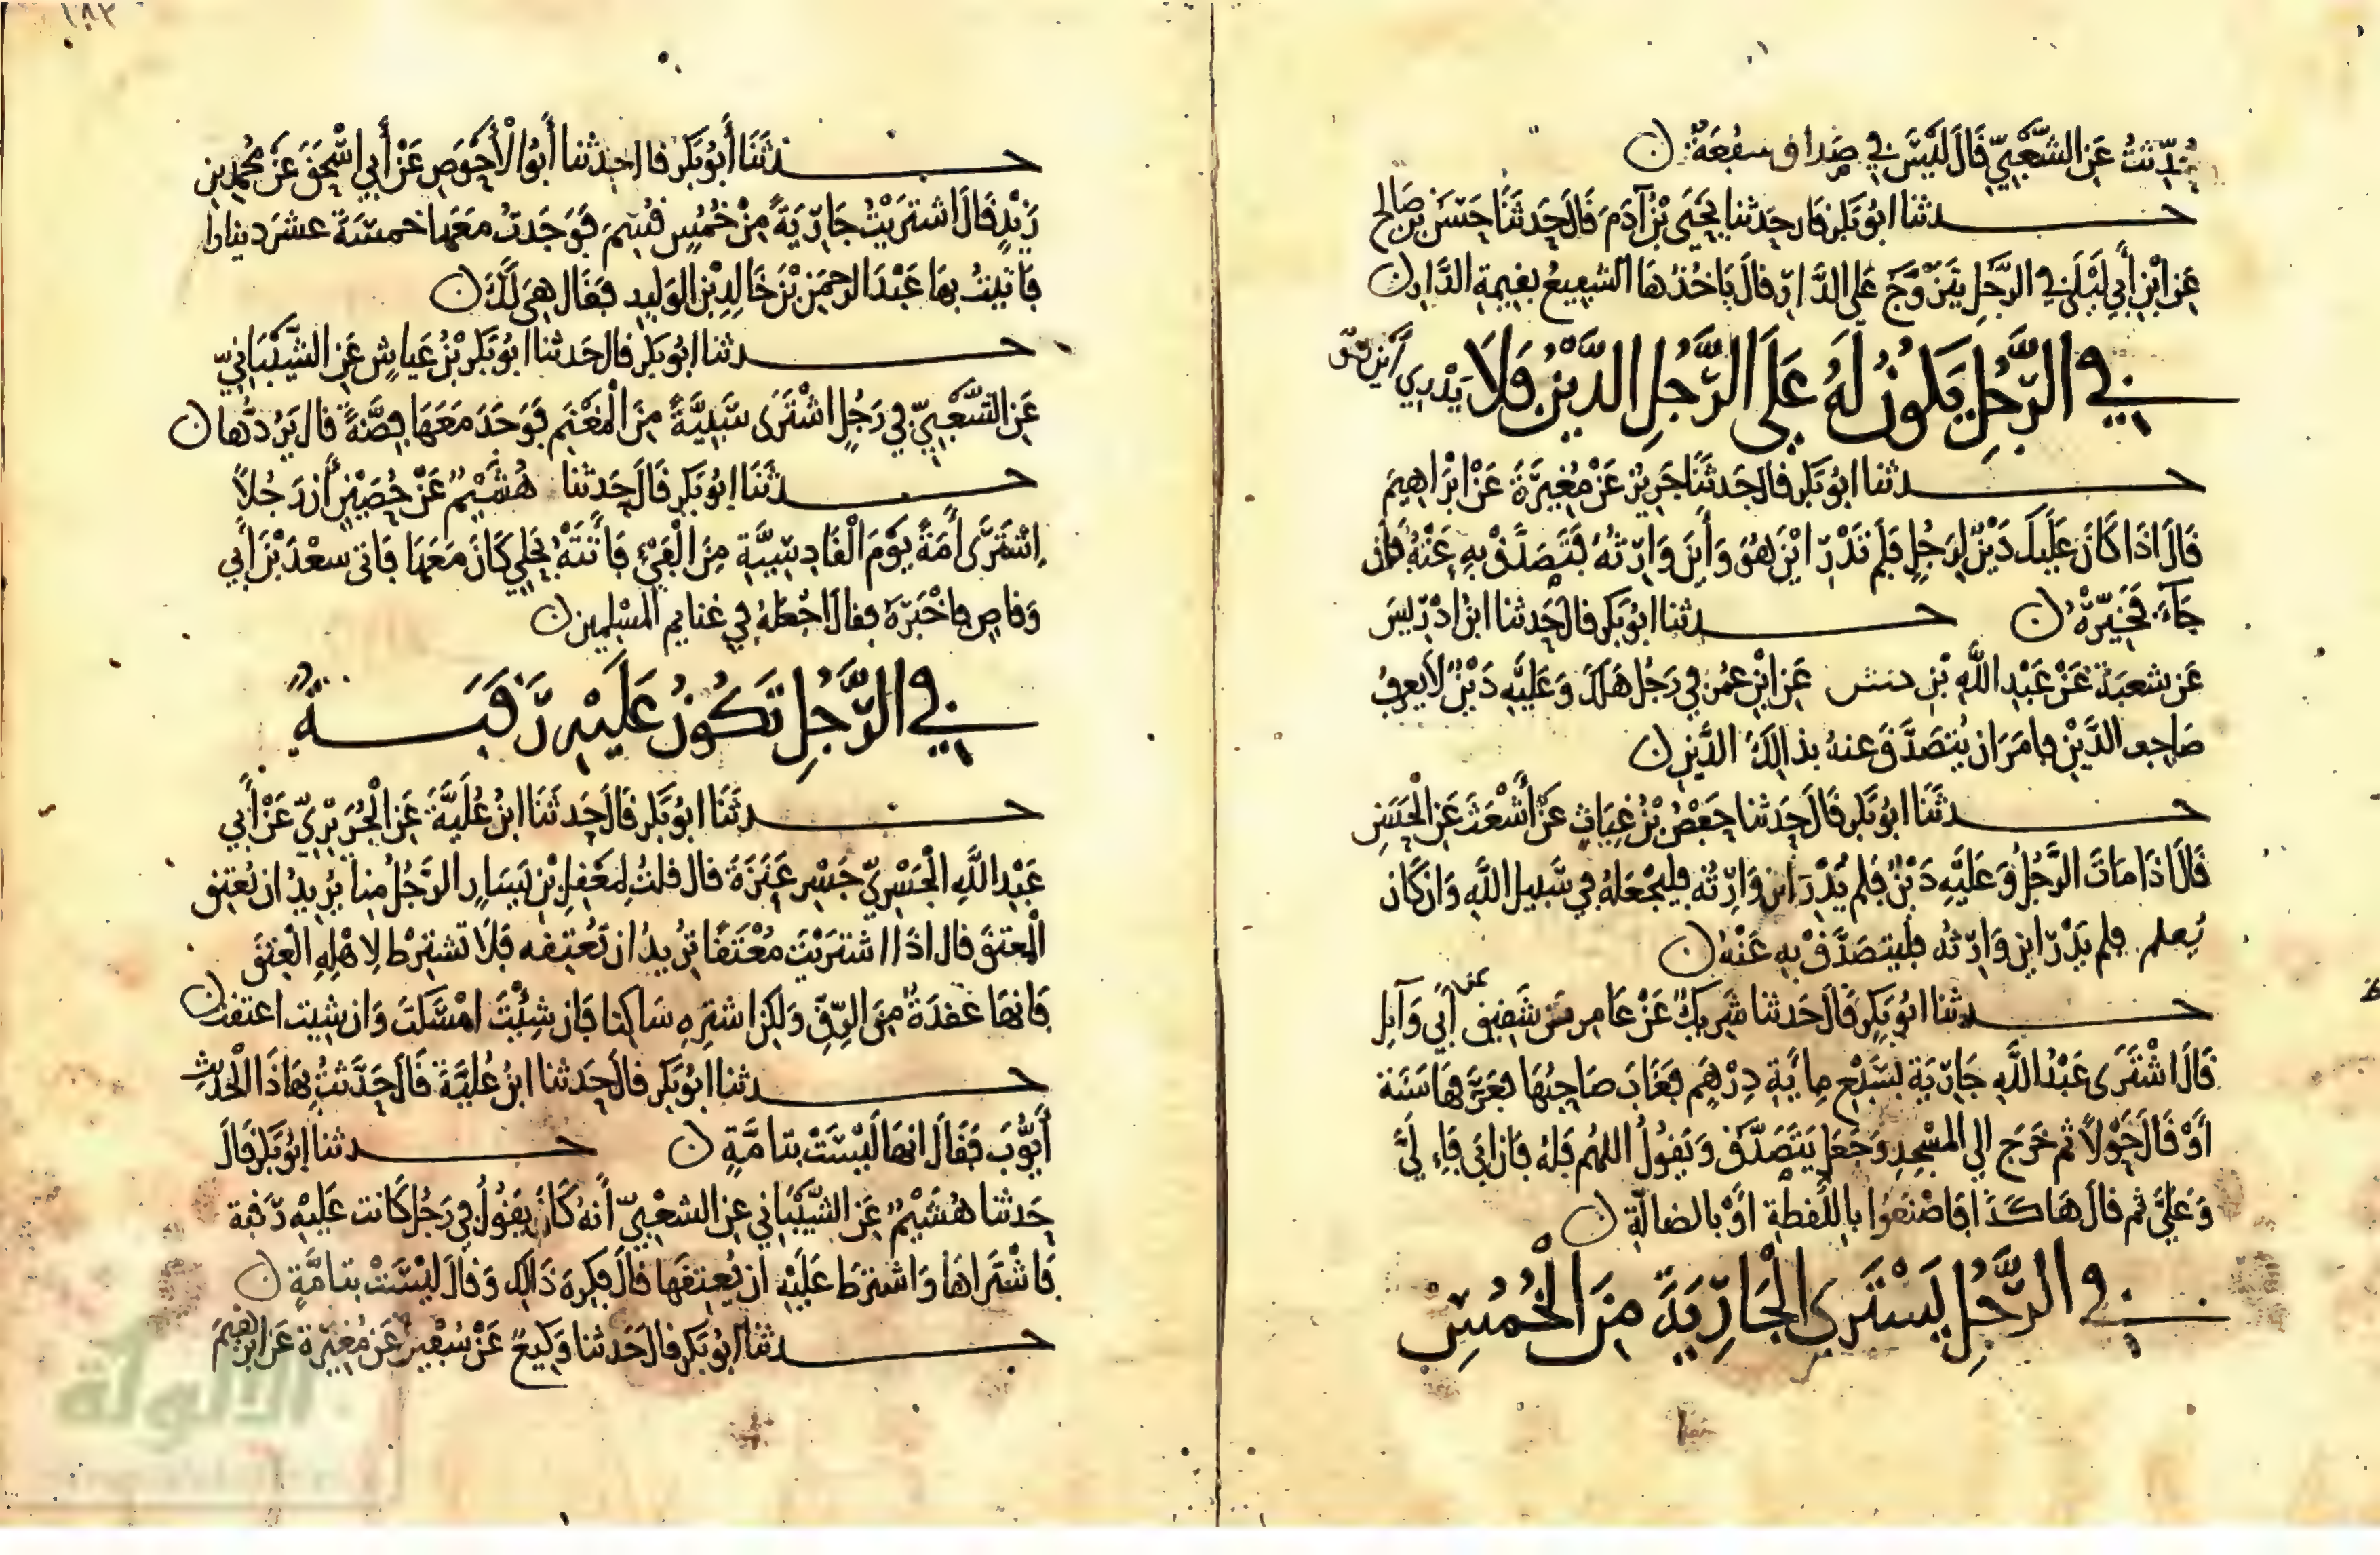 حُدِّثتُ عَن الشَّعْبِيِّ قَالَ لَيْسَ فِي صَدَاقٍ شُفْعَةٌ
حدثنا ابُو بَكر قال حَدثنا يَحْيَى بْنُ آدَمَ قَالَ حَدثَنَا حَسَن بن صَالح
عَن ابْنِ أَبِي لَيْلَى فِي الرَّجُلِ يَتَزَوَّجُ عَلَى الدَّارِ قَالَ يَاخُذُهَا الشَّفِيعُ بِقِيمةِ الدَّارِ
فِي الرَّجُلِ يَكُونُ لَهُ عَلَى الرَّجُلِ الدَّيْنُ فَلَا يَدْرِي أَيْنَ هُوَ
حدثنا ابُو بَكر قال حَدثَنَا جَرِيرٌ عَنْ مُغِيرَةَ عَنْ ابْرَاهِيمَ
قَالَ اذَا كَانَ عَلَيْكَ دَيْنٌ لِرَجُلٍ فَلَم تَدْرِ ايْنَ هُوَ وَأَينَ وَارِثُهُ فَتَصَدَّقْ بِهِ عَنْهُ فَإن
جَآءَ فَخَيِّرْهُ حدثنا ابُو بَكر قال حَدثنا ابنُ ادْرِيسَ
عَن شعبَةَ عَنْ عَبْدِ اللَّهِ بْنِ حنش عَنِ ابْنِ عُمَرَ فِي رَجُلٍ هَلَكَ وَعَلَيْهِ دَيْنٌ لَا يُعرِفُ
صَاحِب الدَّيْنِ فامَرَ ان يُتَصَدَّقَ عنهُ بذالِكَ الدَّينِ
حدثَنَا ابُو بَكر قَالَ حَدثنا حَفْصُ بْنُ غِيَاثٍ عَنْ أَشْعَثَ عَنِ الْحَسَنِ
قَالَ اذَا مَاتَ الرَّجُلُ وَعَلَيْهِ دَيْنٌ فلم يُدْرَ اين وَارِثُه فليجْعَلهُ فِي سَبيل اللَّهِ وَان كَان
يُعلم فلم يَدْرِ اين وَارِثُه فليتصَدَّقْ بِهِ عَنْهُ
حدثنا ابُو بَكرٍ قَالَ حَدثنا شَرِيكٌ عَنْ عَامِر عن شَقِيق أَبِي وَآئِل
قَالَ اشْتَرَى عَبْدُ اللَّهِ جَارِيَة بسَبْعِ مِائَةِ دِرْهَمٍ فغَابَ صَاحِبُهَا فعَرَّفهَا سَنَة
أَوْ قَالَ حَوْلًا ثم خَرَجَ الى المَسْجِدِ وَجَعَلَ يَتَصَدَّقُ وَيَقُولُ اللهُم فَلهُ فَان ابَى فَلِي
وَعَلَيَّ ثم قَالَ هَاكَذَا فَاصْنَعُوا بِاللُّقطَةِ أَوْ بالضالَّةِ
فِي الرَّجُلِ يَشْتَرِي الْجَارِيَةَ مِنَ الْخُمُسِ
حدثَنَا أَبُو بَكر قال حدثنا أَبُو الْأَحْوَصِ عَنْ أَبِي اسْحَقَ عَنْ مُحَمدِ بنِ
زَيْدٍ قَالَ اشتَرَيْتُ جَارِيَةً مِنْ خُمُسٍ قُسِمَ فَوَجَدتُ مَعَهَا خَمسَةَ عشَرَ دينارا
فَاتَيتُ بهَا عَبْدَ الرحمَنِ بْنَ خَالِدِ بْنِ الوَلِيد فَقَال هِيَ لَكَ
حدثنا ابُو بَكر قال حَدثنا ابُو بَكر بْنُ عَياشٍ عَنِ الشَّيْبَانِيِّ
عَن الشَّعْبِيِّ فِي رَجُلٍ اشْتَرَى سَبِيَّةً مِنَ الْمَغْنَمِ فَوَجَدَ مَعَهَا فِضَّةً قَال يَرُدُّهَا
حدثَنَا ابُو بَكر قَالَ حَدثنا هُشَيْمٌ عَنْ حُصَيْنٍ أَنَّ رَجُلًا
اشْتَرَى أَمَةً يَوْمَ الْقَادِسِيَّةِ مِنَ الْفَيْءِ فَأَتَتْهُ بِحُلِيٍّ كَانَ مَعَهَا فَاتى سعْدَ بْنَ أَبِي
وَقاصٍ فاخْبَرَهُ فقال اجْعَلهُ فِي غنايم المُسْلِمِين
فِي الرَّجُلِ تَكُونُ عَلَيْهِ رَقَبَةٌ
حدثَنَا ابُو بَكر قَالَ حَدثَنَا ابنُ عُلَيَّةَ عَنِ الْجُرَيْرِيِّ عَنْ أَبِي
عَبْدِ اللَّهِ الْجَسْرِيِّ جَسْرِ عَنَزَةَ قَال قلتُ لِمَعْقِلِ بْنِ يَسَارٍ الرَّجُلُ مِنا يُرِيدُ ان يُعتِقَ
الْمعتقَ قال اذَا اشتَرَيْتَ مُعْتَقًا تُرِيدُ ان تُعْتِقه فَلَا تشترِط لاهْلِهِ الْعِتْقَ
فَانهَا عقدَةٌ مِنَ الرِّقِّ وَلكِن اشتَرِهِ سَاكِنا فَان شِئْتَ امْسَكتَ وَان شِيت اعتقت
حدثنا ابُو بَكر قالَ حَدثنا ابنُ عُلَيَّةَ قَالَ حَدَّثتُ بِهَاذَا الْحَدِيثِ
أَيُّوبَ فَقَالَ انهَا لَيْسَتْ بتامَّةٍ حدثنا ابُو بَكر قَالَ
حَدثنا هُشَيْمٌ عَنِ الشَّيْبَانِي عَنِ الشعْبِيِّ أَنهُ كَانَ يَقُولُ فِي رَجُلٍ كَانت عَلَيْهِ رَقبة
فَاشْتَرَاهَا وَاشتَرَطَ عَلَيْهِ ان يُعتِقَهَا قَالَ فكِرِهَ ذَالِكَ وَقَالَ لَيْسَتْ بتامَّةٍ
حدثنا ابُو بَكر قالَ حَدثنا وَكِيعٌ عَنْ سُفْيَنَ عَن مُغِيرَةَ عَن ابراهِيمَ
الألوكة